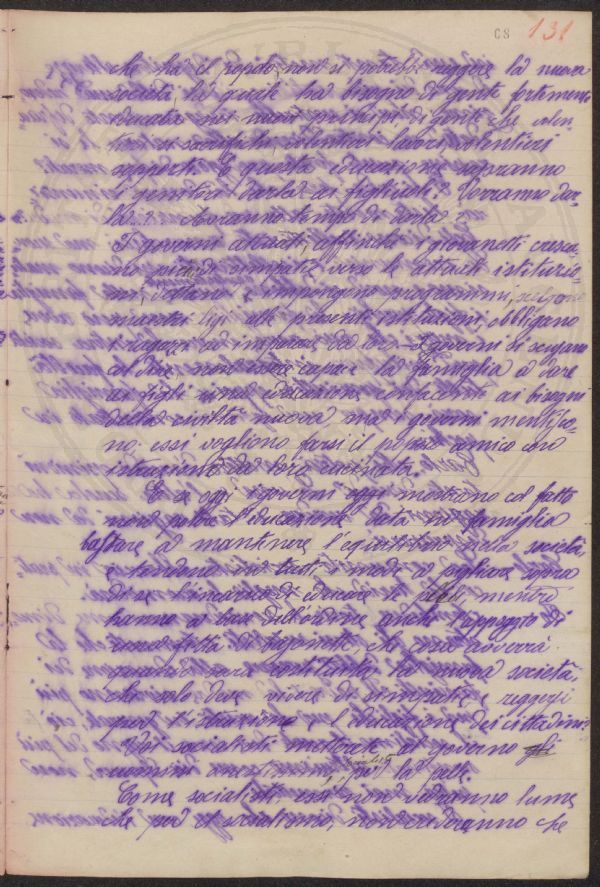 C8 131
che ha il popolo, non si potrebbe reggere la nuova
società, la quale ha bisogno di gente fortemente
educata nei nuovi principi di gente che volen-
tieri si sacrifichi, volentieri lavori, volentieri
sopporti. E questa educazione sapranno
i genitori darla ai figliuoli? Vorranno dar-
la? Avranno tempo di darla?
I governi attuali, affinché i giovanetti cresca-
no pieni di simpatie verso le attuali istituzio-
ni, dettano e impongono programmi,
maestri ligi alle presenti istituzioni, obbligano
i ragazzi ad imparare da loro. I governi si scusano
col dire non essere capace la famiglia a dare
ai figli una educazione confacente ai bisogni
della civiltà nuova ma i governi mentisco-
no: essi vogliono farsi il popolo amico con
istruzione da loro
E se oggi i governi oggi mostrano col fatto
non poter l'educazione data in famiglia
bastare a mantenere l'equilibrio nella società
e tendono in tutti i modi a togliere sopra
di sé l'incarico di educare mentre
hanno a base dell'ordine anche l'appoggio di
una fitta di baionette, che cosa avverrà
quando sarà costituita la nuova società,
che solo deve vivere di simpatie e reggersi
per l'istruzione e l'educazione dei cittadini?
Voi socialisti mettete al governo
uomini per la pelle.
Come socialisti, essi non vedranno lume
che per il socialismo, non crederanno che